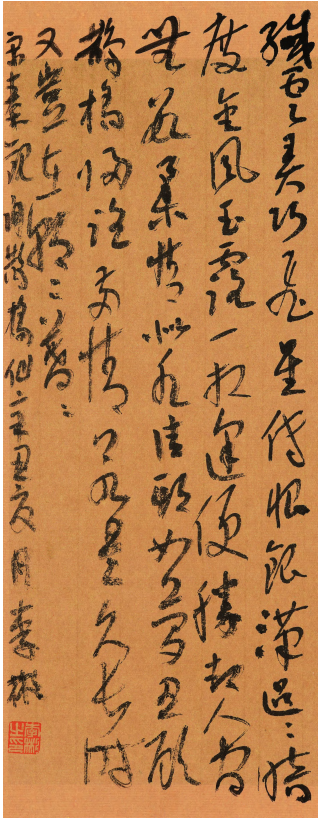 纖雲弄巧飛星傳恨銀漢迢〻暗
度金風玉露一相逢便勝却人間
無數柔情似水佳期如夢忍顧
鵲橋歸路兩情若是久長時
又豈在朝〻暮〻
宋秦觀詞鵲橋仙辛丑月李彬